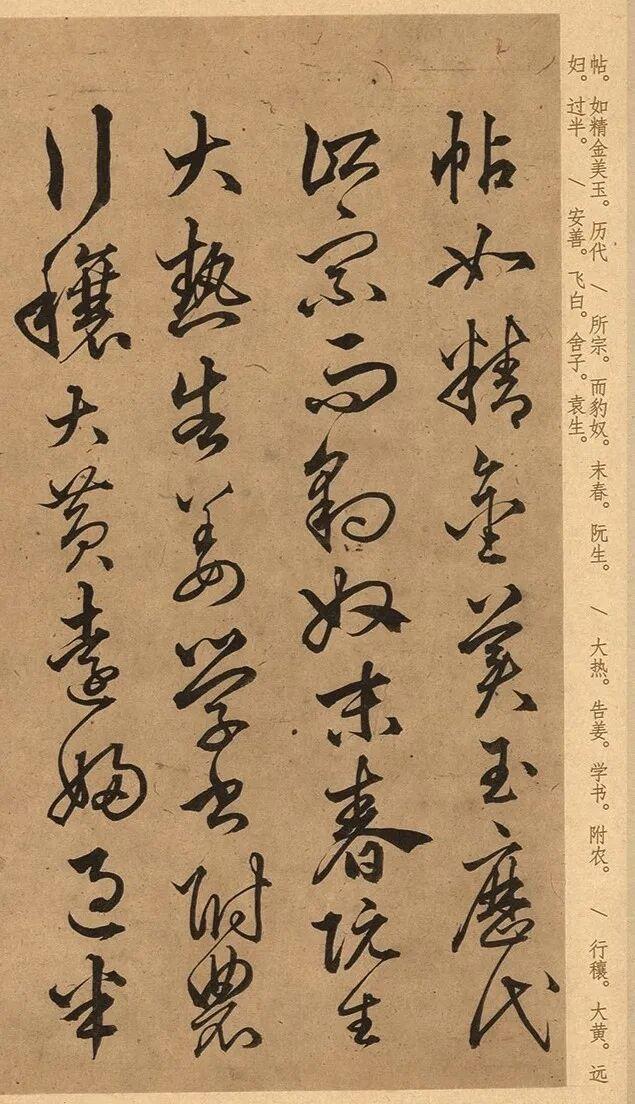 帖。如精金美玉。历代 / 所宗。而豹奴。末春。阮生。 / 大热。告姜。学书。附农。 / 行穰。大黄。远
妇。过半。 / 安善。飞白。舍子。袁生。
帖如精金美玉歷代
所宗而豹奴末春阮生
大熱告姜學書附農
行穰大黃遠婦過半